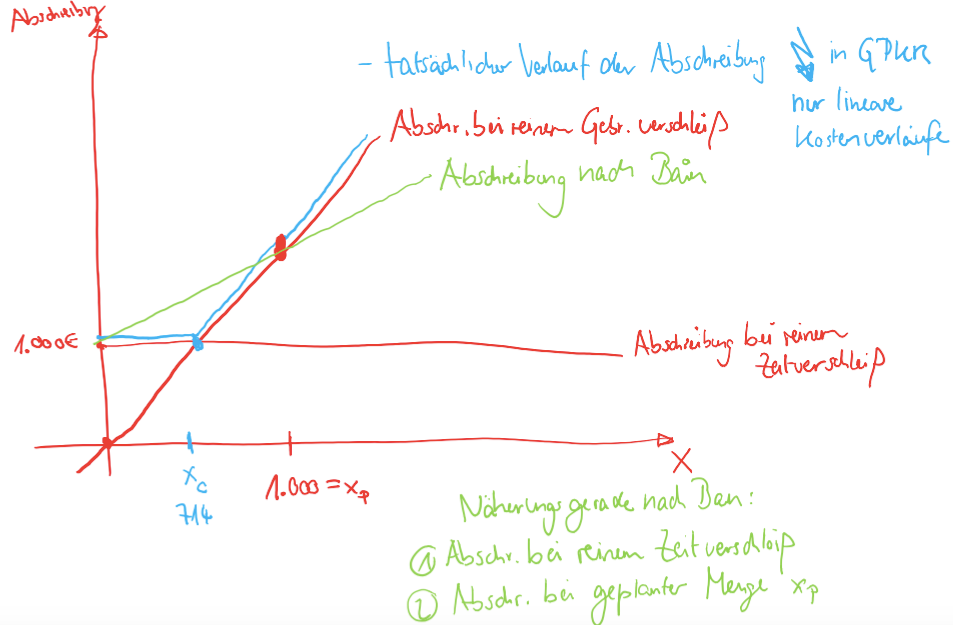 Abschreibung
- tatsächlicher Verlauf der Abschreibung
in GPKR
nur lineare
Kostenverläufe
Abschr. bei reinem Gebr. verschleiß
Abschreibung nach Bain
1.000€
Abschreibung bei reinem
Zeitverschleiß
x
xc
714
1.000 = xp
Näherungsgerade nach Bain:
① Abschr. bei reinem Zeitverschleiß
② Abschr. bei geplanter Menge xp